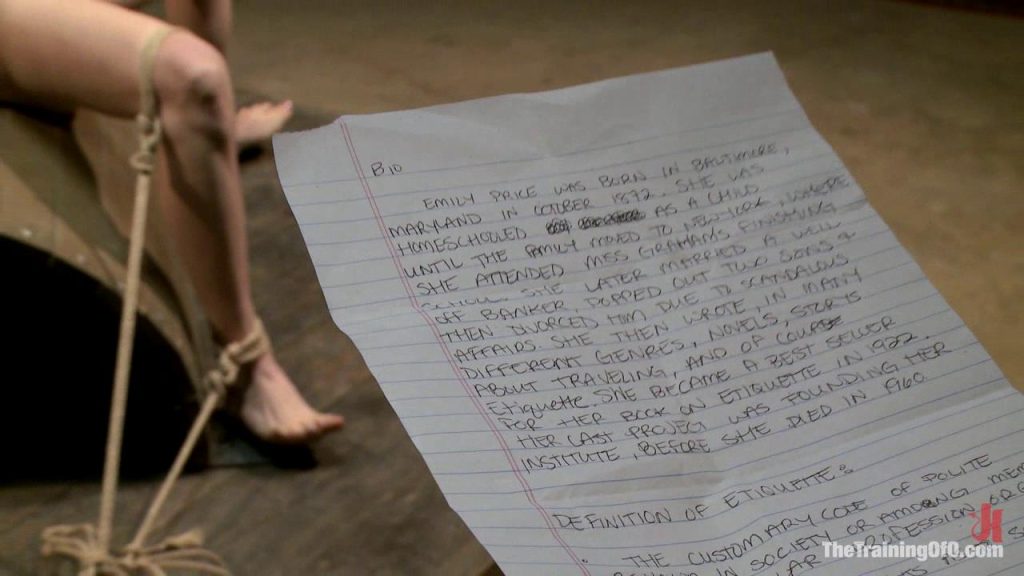 BIO
EMILY PRICE WAS BORN IN BALTIMORE,
MARYLAND IN OCTOBER 1872. SHE WAS
HOMESCHOOLED AS A CHILD
UNTIL THE FAMILY MOVED TO NEW YORK, WHERE
SHE ATTENDED MISS GRAHAM'S FINISHING
SCHOOL. SHE LATER MARRIED A WELL
OFF BANKER, POPPED OUT TWO SONS &
THEN DIVORCED HIM DUE TO SCANDALOUS
AFFAIRS SHE THEN WROTE IN MANY
DIFFERENT GENRES, NOVELS, STORIES
ABOUT TRAVELING, AND OF COURSE
ETIQUETTE SHE BECAME A BEST SELLER
FOR HER BOOK ON ETIQUETTE IN 1922.
HER LAST PROJECT WAS FOUNDING HER
INSTITUTE BEFORE SHE DIED IN 1960
DEFINITION OF ETIQUETTE:
THE CUSTOMARY CODE OF POLITE
IN SOCIETY OR AMONG
PROFESSION OR
TheTrainingOfO.com